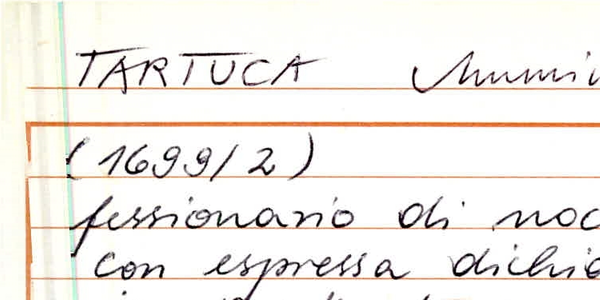 TARTUCA
(1699/2)
fessionario di noc
con espressa dichia